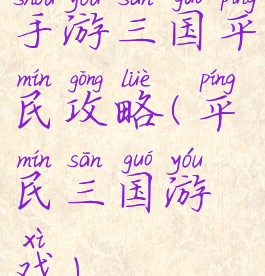 shǒu yóu sān guó píng
手游三国平
mín gōng lüè píng
民攻略(平
mín sān guó yóu
民三国游
xì
戏)